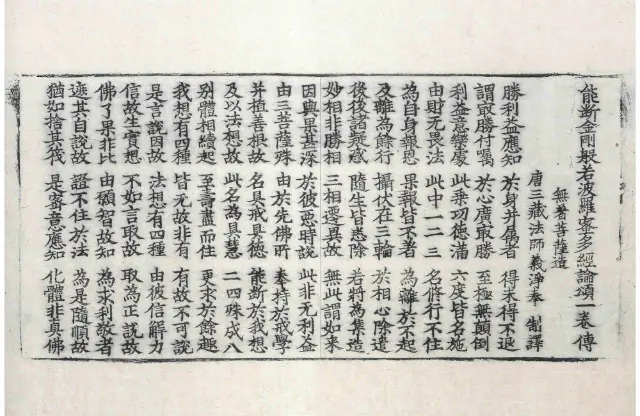 能断金剛般若波羅蜜多經論頌一卷 傳
無著菩薩造
唐三藏法師義淨奉 制譯
勝利益應知 於身并屬者 得未得不退
謂最勝付囑 於心廣最勝 至極無顛倒
利益意樂處 此乘功德滿 六度皆名施
由財无畏法 此中一二三 名修行不住
為自身報恩 果報皆不著 為離於不起
及離為餘行 攝伏在三輪 於相心除遣
後後諸疑惑 隨生皆悉除 若將為集造
妙相非勝相 三相遷異故 無此謂如來
因與果甚深 於彼惡時說 此非无利益
由三菩薩殊 由於先佛所 奉持於戒學
并植善根故 名具戒具德 能断於我想
及以法想故 此名為具慧 二四殊成八
別體相續起 至壽盡而住 更求於餘趣
我想有四種 皆无故非有 有故不可說
是言說因故 法想有四種 由彼信解力
信故生實想 不如言取故 取為正說故
佛了果非比 由願智故知 為求利敬者
遮其自說故 證不住於法 為是隨順故
猶如捨其筏 是密意應知 化體非真佛